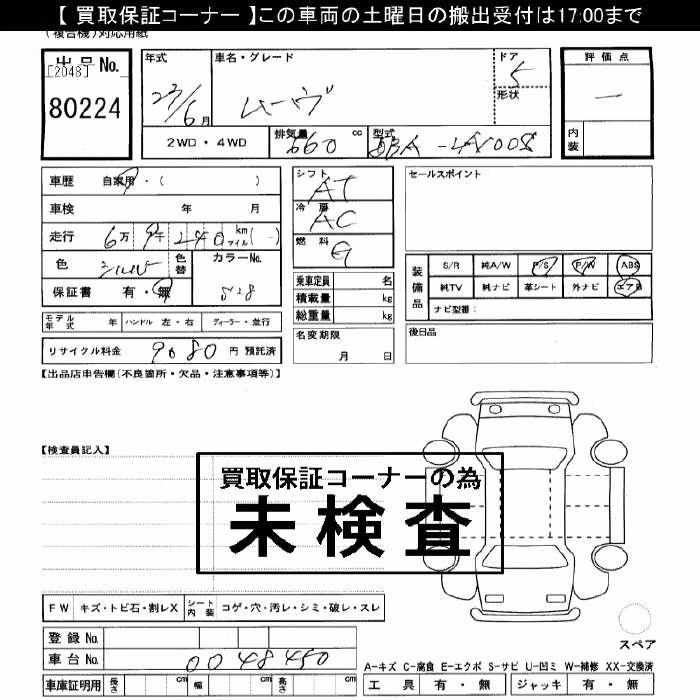 【 買取保証コーナー 】この車両の土曜日の搬出受付は17:00まで
(複合機)対応用紙
出品No.
[2048]
80224
年式
23/6月
車名・グレード
ムーヴ
ドア 5
形状
評価点
—
内装
2WD・4WD
排気量 660 cc
型式 DBA-LA100S
車歴 自家用・( )
車検 年 月
走行 6万9千240km マイル( - )
色 シルバー 色替 カラーNo.
保証書 有・無 S28
シフト AT
冷房 AC
燃料 G
乗車定員 名
積載量 kg
総重量 kg
名変期限
月 日
セールスポイント
装備品
S/R 純A/W P/S P/W ABS
純TV 純ナビ 革シート 外ナビ エアB
ナビ型番:
後日品
モデル年式 年 ハンドル 左・右 ディーラー・並行
リサイクル料金 9080 円 預託済
【出品店申告欄(不良箇所・欠品・注意事項等)】
【検査員記入】
買取保証コーナーの為
未検査
FW キズ・トビ石・割レX シート内装 コゲ・穴・汚レ・シミ・破レ・スレ
スペア
登録No.
車台No. 0048450
車庫証明用 長さ cm 幅 cm 高さ cm
A-キズ C-腐食 E-エクボ S-サビ U-凹ミ W-補修 XX-交換済
工具 有・無 ジャッキ 有・無